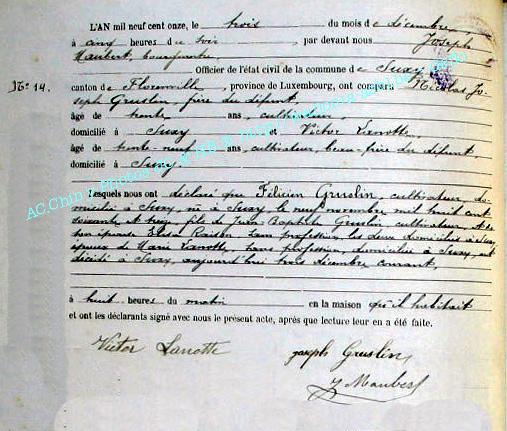 L'AN mil neuf cent onze, le trois du mois de décembre
à cinq heures du soir, par devant nous Joseph
Maubert, bourgmestre
Officier de l'état civil de la commune de Suxy
N° 14. canton de Florenville, province de Luxembourg, ont comparu Nicolas Jo-
seph Gruslin, frère du défunt,
âgé de trente ans, cultivateur,
domicilié à Suxy et Victor Lanotte
âgé de trente neuf ans, cultivateur, beau-frère du défunt,
domicilié à Suxy,
Lesquels nous ont déclaré que Félicien Gruslin, cultivateur, do-
micilié à Suxy, né à Suxy le neuf novembre mil huit cent
soixante et treize fils de Baptiste Gruslin, cultivateur, et de
son épouse sans profession, les deux domiciliés à Suxy,
époux de Marie Lanotte, sans profession, domiciliée à Suxy, est
décédé à Suxy, aujourd'hui trois décembre courant,
à huit heures du matin en la maison qu'il habitait
et ont les déclarants signé avec nous le présent acte, après que lecture leur en a été faite.
Victor Lanotte Joseph Gruslin
J Maubert
AC.Chin Photos